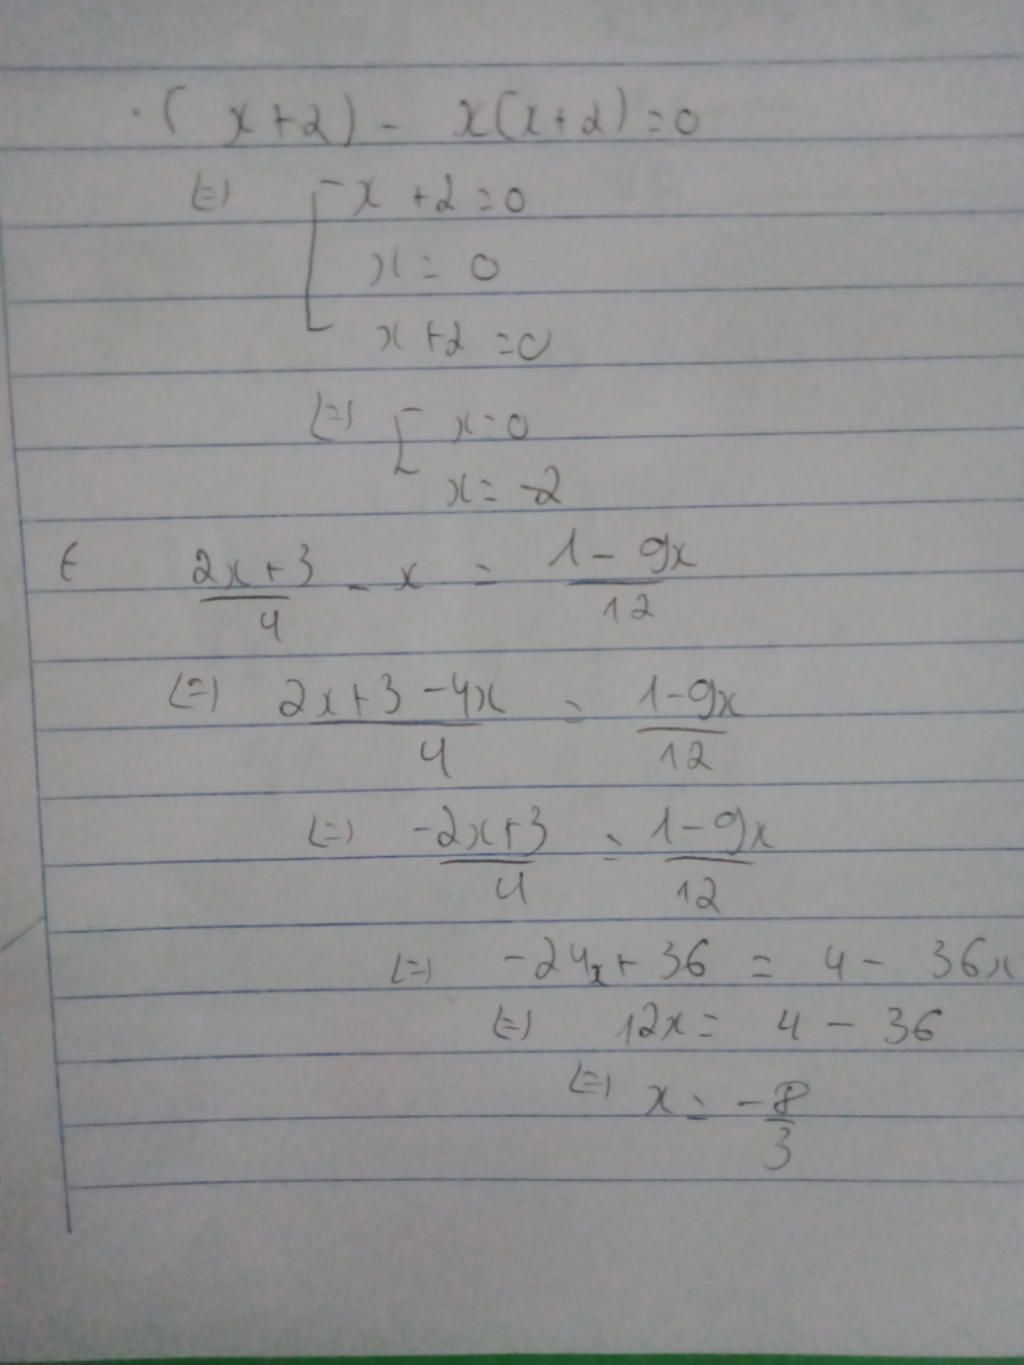 . (x+2) - x(x+2) = 0
(=) [ x+2 = 0
x = 0
x+2 = 0
(=) [ x = 0
x = -2
€ (2x+3)/4 - x = (1-9x)/12
(=) (2x+3-4x)/4 = (1-9x)/12
(=) (-2x+3)/4 = (1-9x)/12
(=) -24x + 36 = 4 - 36x
(=) 12x = 4 - 36
(=) x = -8/3